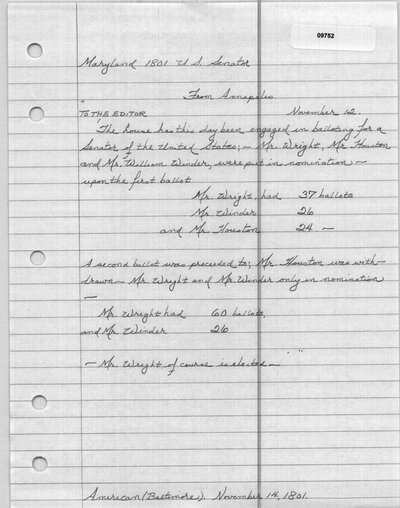 09752
Maryland 1801 U S Senator
From Annapolis
"
TO THE EDITOR November 12.
The house has this day been engaged in balloting for a
Senator of the United States; — Mr. Wright, Mr. Houston
and Mr. William Winder, were put in nomination —
upon the first ballot
Mr. Wright, had 37 ballots
Mr. Winder 26
and Mr. Houston 24. —
A second ballot was proceeded to; Mr. Houston was with-
drawn — Mr. Wright and Mr. Winder only in nomination
—
Mr. Wright had 60 ballots,
and Mr. Winder 26
— Mr. Wright, of course is elected — "
American (Baltimore). November 14, 1801.